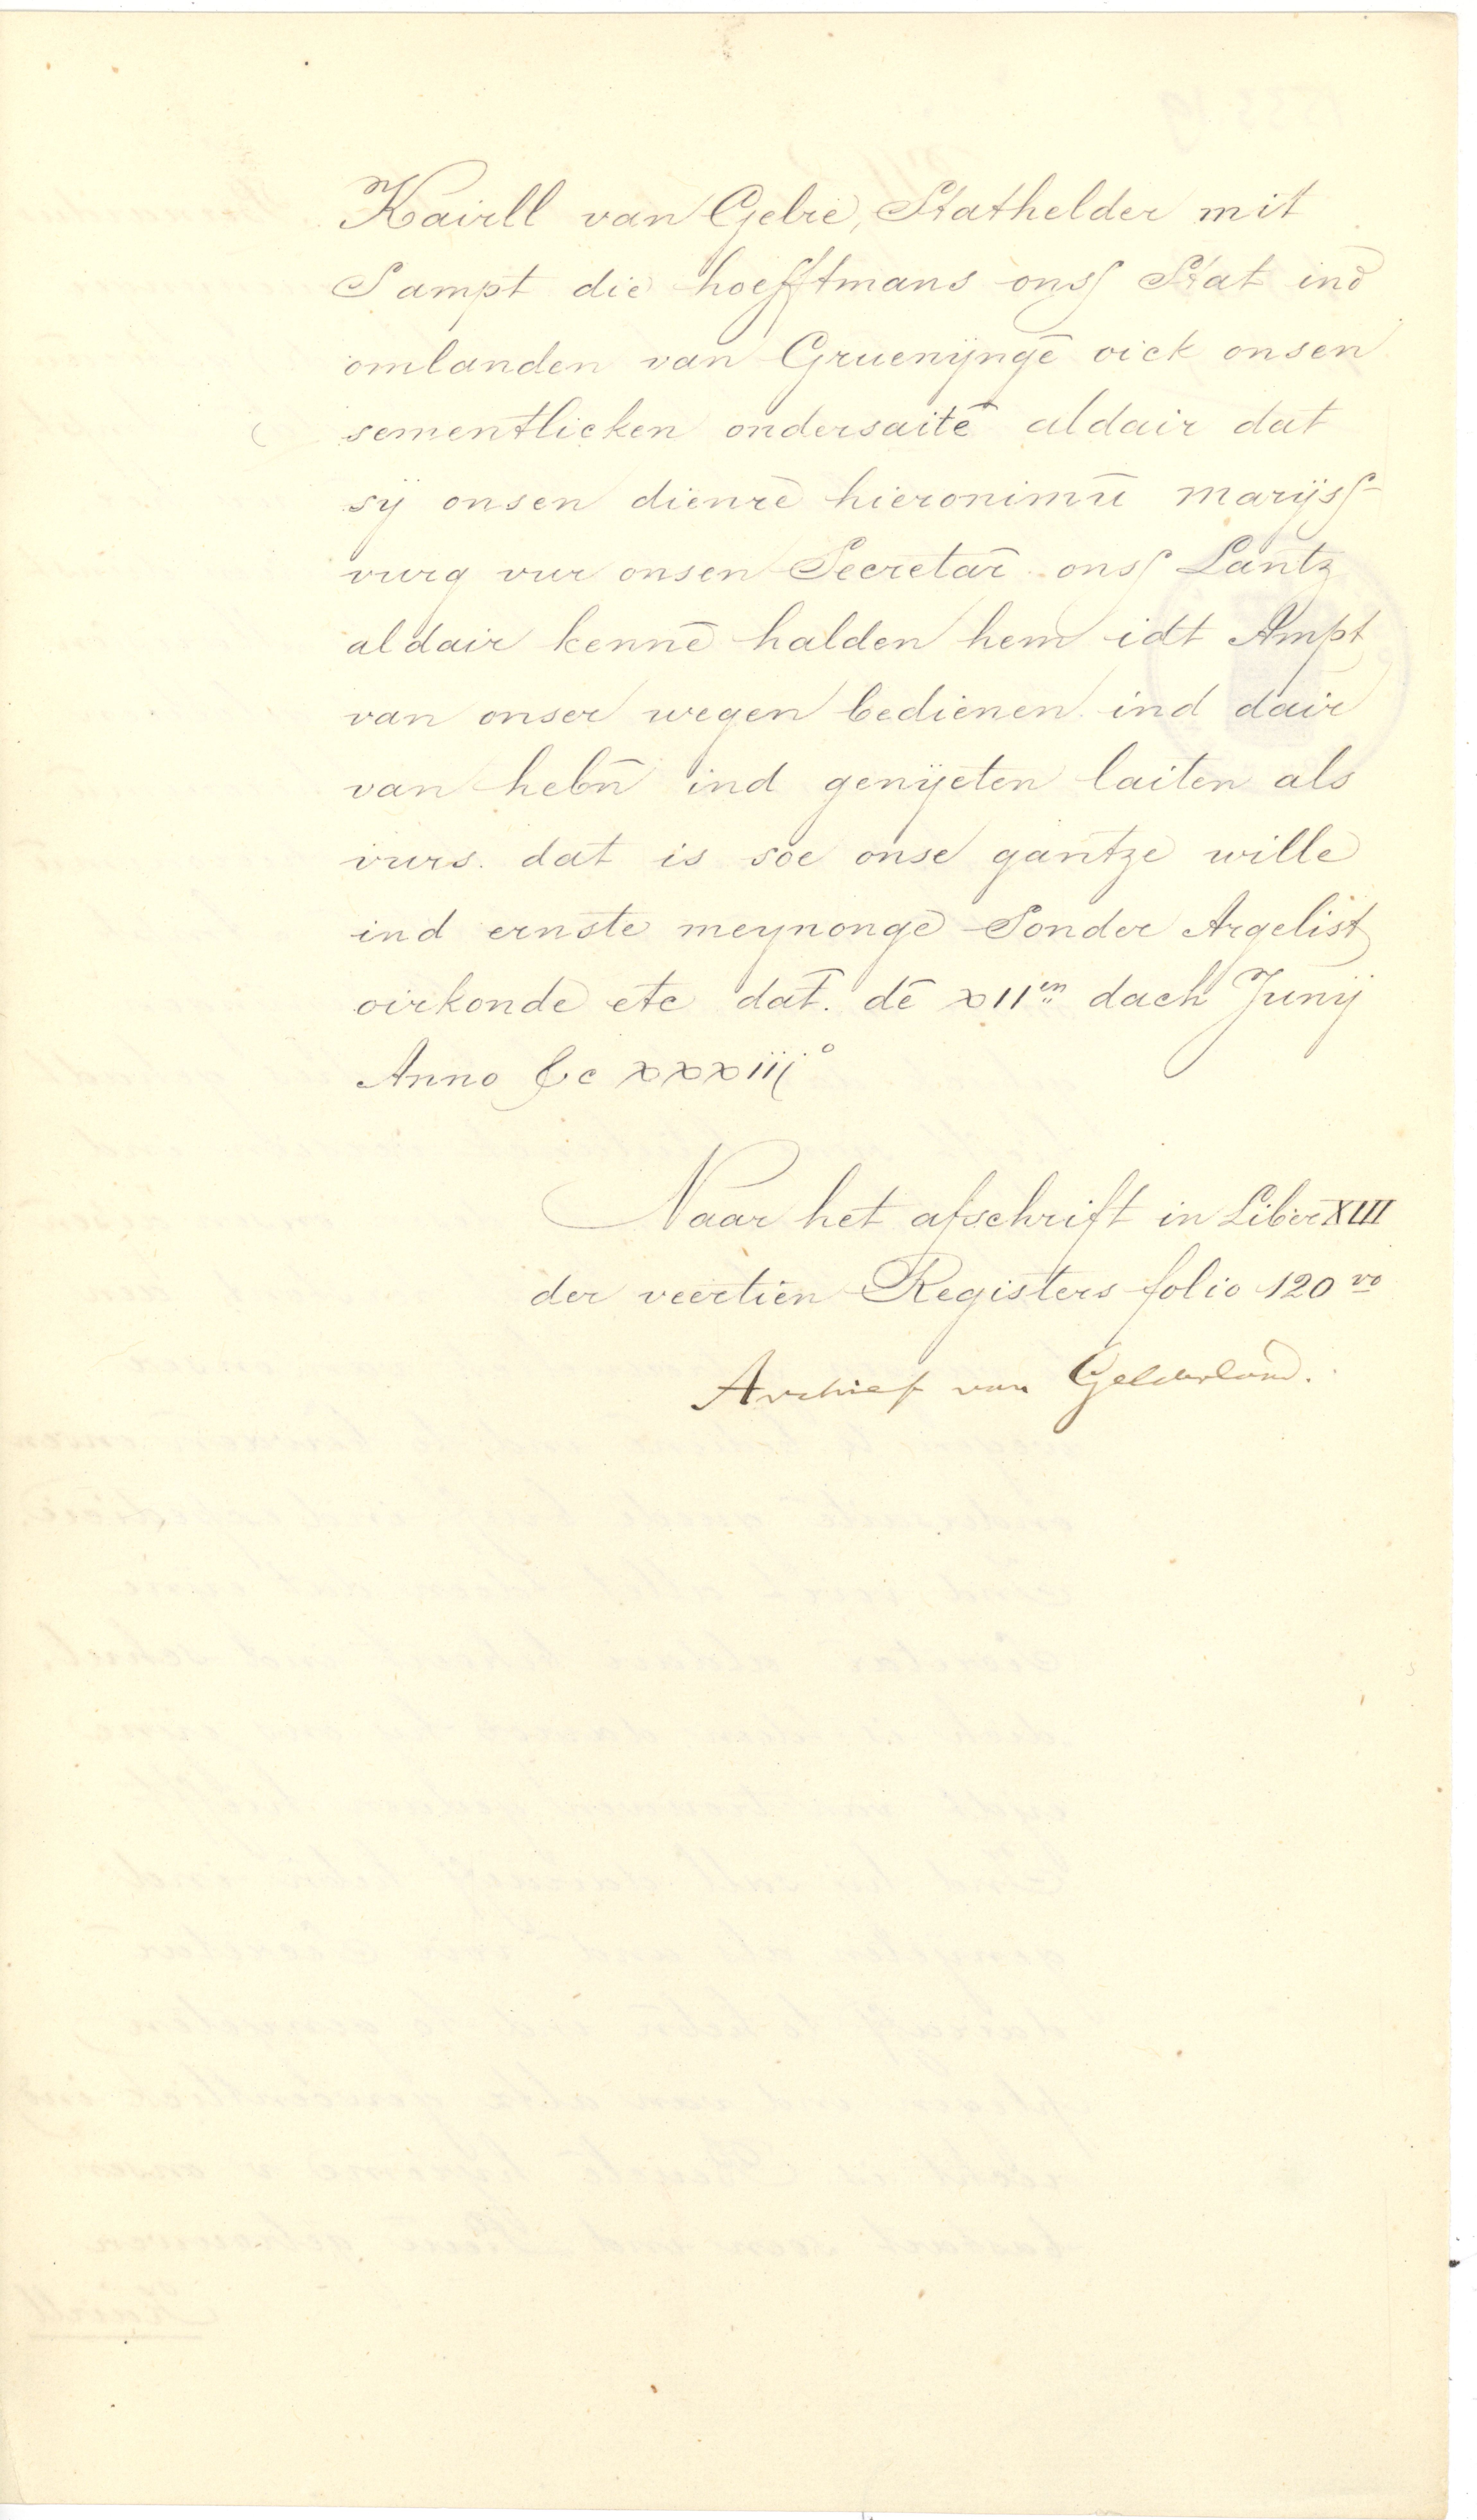 Kairll van Gelre, Stathelder mit
Sampt die hoefftmans onsſ Stat ind
omlanden van Gruenijngē oick onsen
sementlicken ondersaitē aldair dat
sij onsen dienrē hieronimū marijsſ-
vurg vur onsen Secretar̄ onsſ Lantz
aldair kennē halden hem idt Ampt
van onser wegen bedienen ind dair
van hebn̄ ind genÿeten laiten als
vurs. dat is soe onse gantze wille
ind ernste meynonge Sonder Argelist
oirkonde etc dat̄. dē XIIen dach Junij
Anno &c XXXiijo
Naar het afschrift in Liber XIII
der veertien Registers folio 120 vo
Archief van Gelderland.